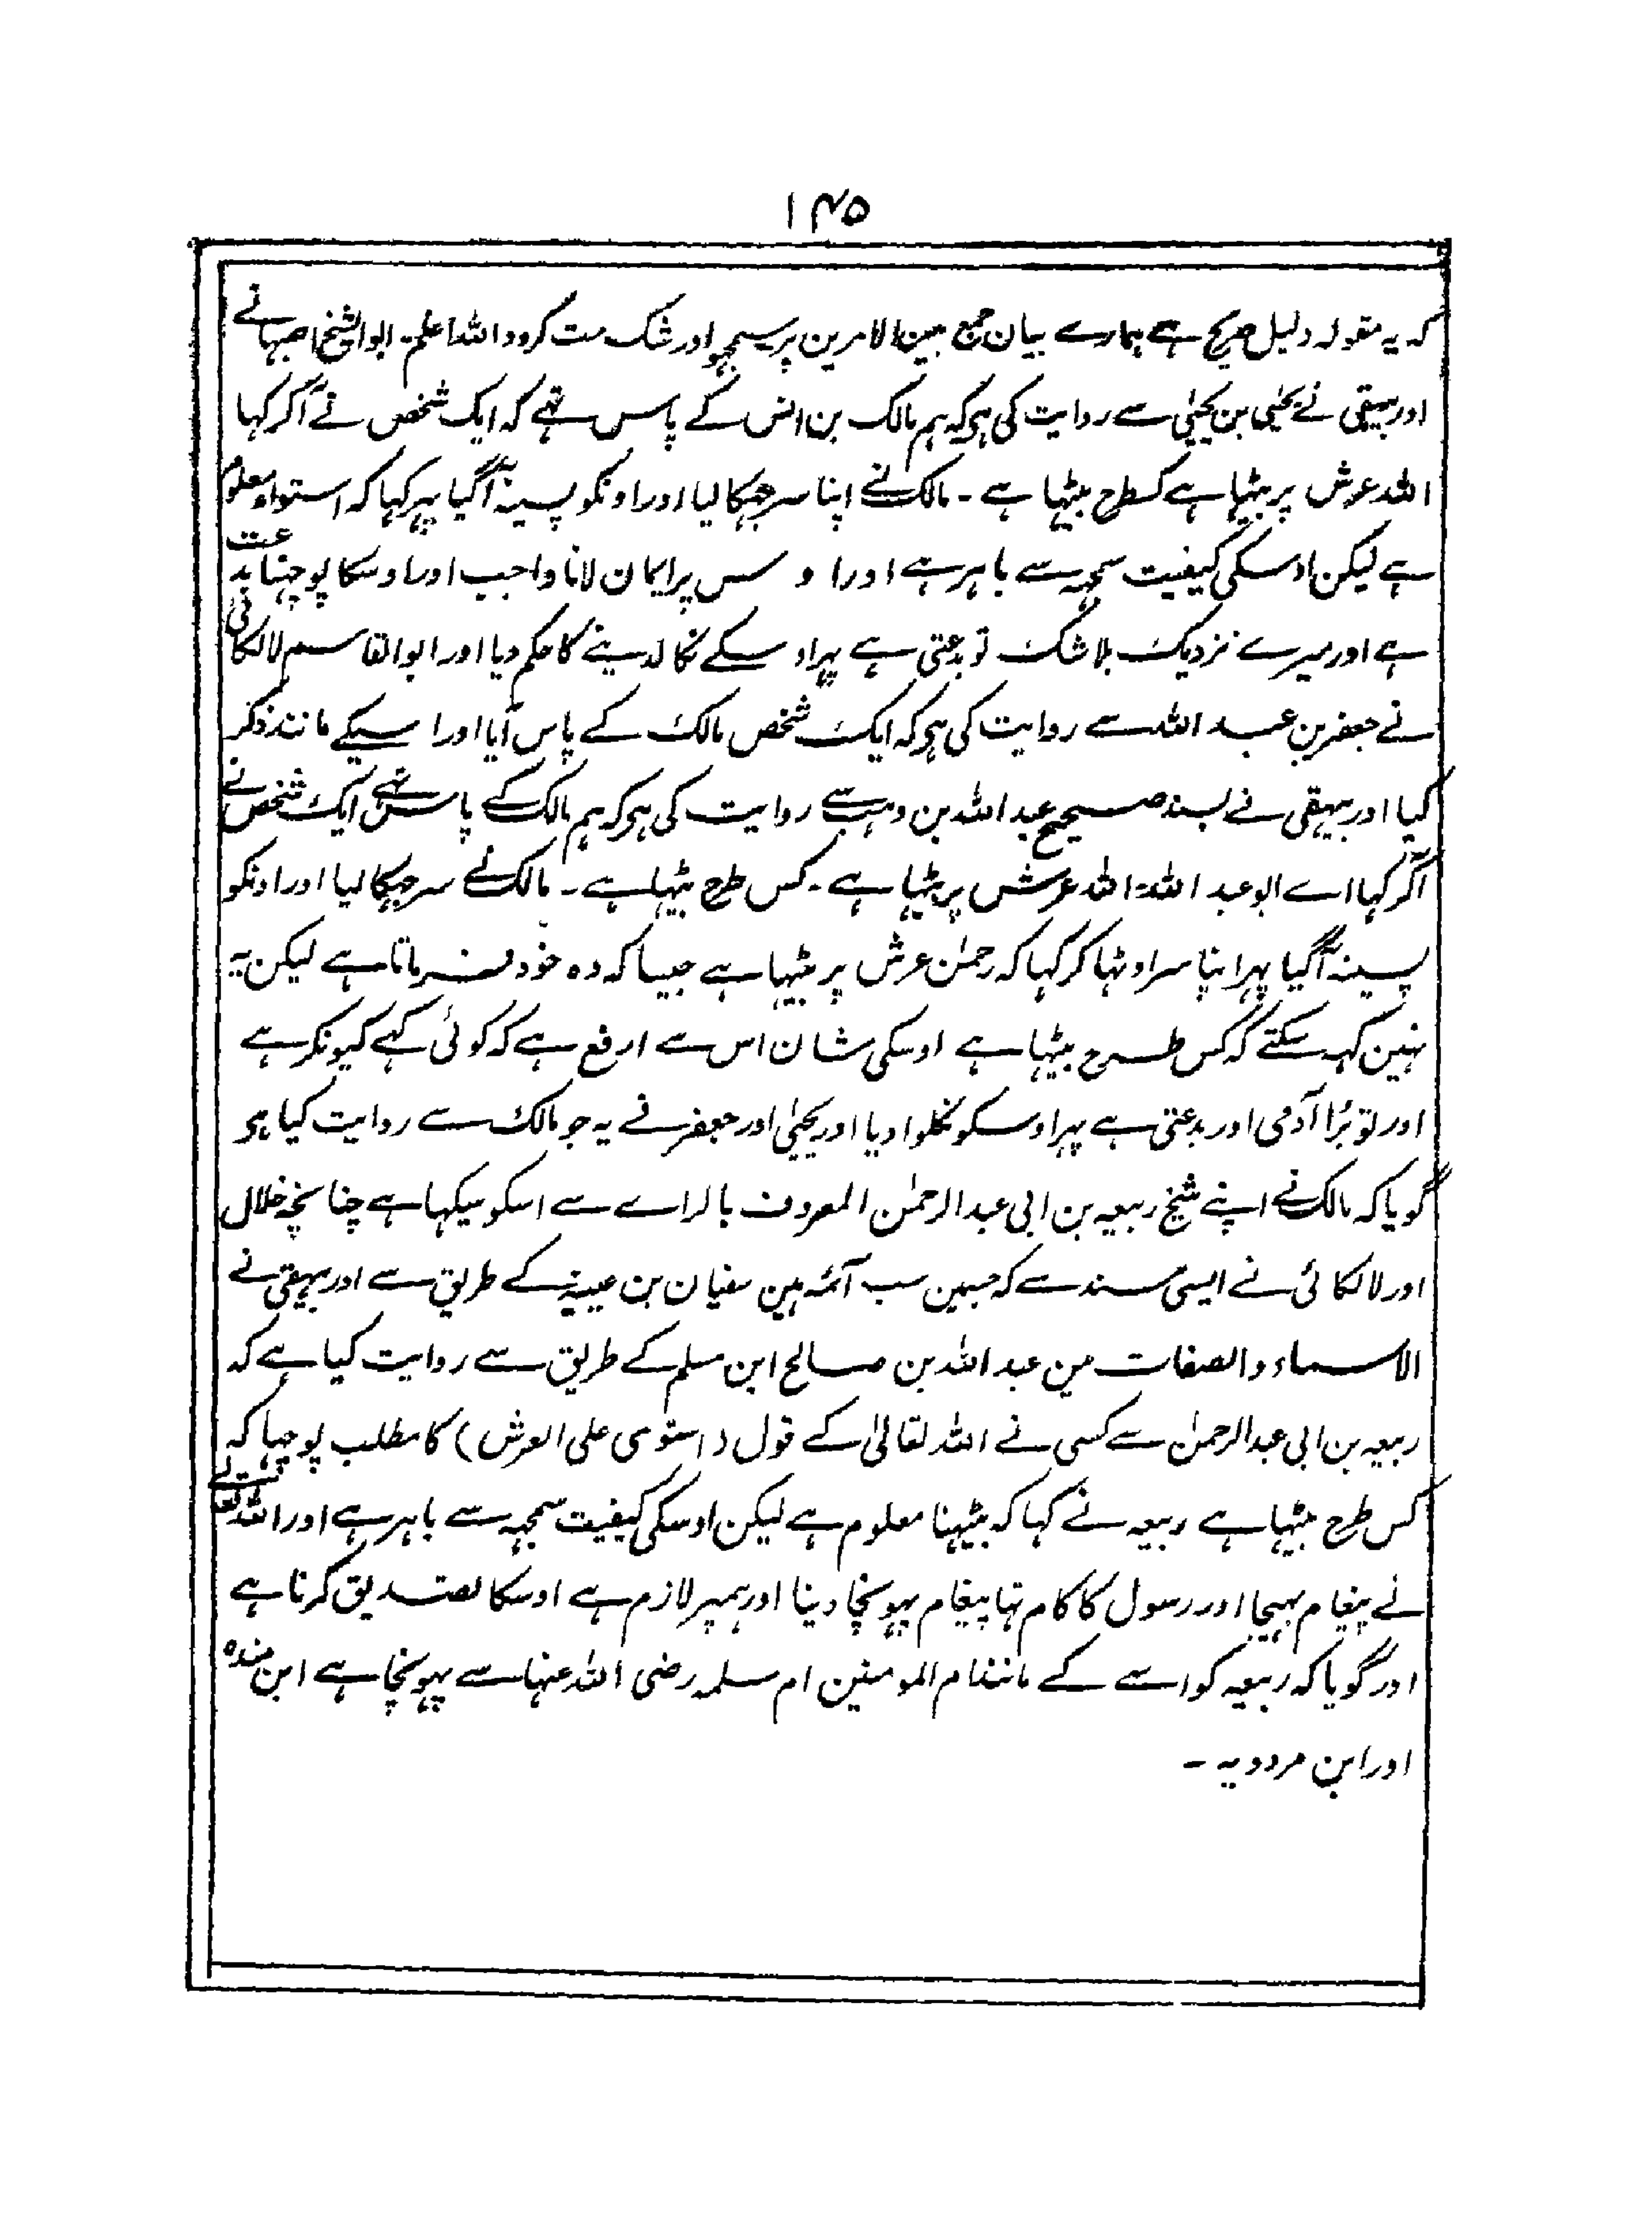 ۱۴۵
کہ یہ مقولہ دلیل صریح ہے ہمارے بیان جمع بین الامرین پر سمجہو اور شک مت کرو واللہ اعلم۔ ابوالشیخ اصبہانے
اور بیہقی نے یحییٰ بن یحییٰ سے روایت کی ہو کہ ہم مالک بن انس کے پاس تہے کہ ایک شخص نے آکر کہا
اللہ عرش پر بیٹہا ہے کسطرح بیٹہا ہے ۔ مالک نے اپنا سر جہکا لیا اور اونکو پسینہ آگیا پہر کہا کہ استواء معلوم
ہے لیکن اوسکی کیفیت سمجہہ سے باہر ہے اور او سس پر ایمان لانا واجب اور اوسکا پوچہنا بدعت
ہے اور میرے نزدیک بلا شک تو بدعتی ہے پہر او سکے نکالدینے کا حکم دیا اور ابوالقاسم لالکائی
نے جعفر بن عبد اللہ سے روایت کی ہو کہ ایک شخص مالک کے پاس آیا اور اسیکے مانند ذکر
کیا اور بیہقی نے بسند صحیح عبد اللہ بن وہب سے روایت کی ہو کہ ہم مالک کے پاس تہے ایک شخص نے
آکر کہا اے ابو عبد اللہ اللہ عرش پر بیٹہا ہے ۔ کس طرح بیٹہا ہے ۔ مالک نے سر جہکا لیا اور اونکو
پسینہ آگیا پہر اپنا سر اوٹہا کر کہا کہ رحمٰن عرش پر بیٹہا ہے جیسا کہ وہ خود فرماتا ہے لیکن یہ
نہین کہہ سکتے کہ کس طرح بیٹہا ہے اوسکی شان اس سے ارفع ہے کہ کوئی کہے کیونکر ہے
اور تو بُرا آدمی اور بدعتی ہے پہر اوسکو نکلوا دیا اور یحییٰ اور جعفر نے یہ جو مالک سے روایت کیا ہو
گویا کہ مالک نے اپنے شیخ ربیعہ بن ابی عبد الرحمٰن المعروف بالراے سے اسکو سیکہا ہے چنانچہ خلال
اور لالکائی نے ایسی سند سے کہ جسمین سب آئمہ ہین سفیان بن عیینہ کے طریق سے اور بیہقی نے
الاسماء والصفات مین عبد اللہ بن صالح ابن مسلم کے طریق سے روایت کیا ہے کہ
ربیعہ بن ابی عبد الرحمٰن سے کسی نے اللہ تعالیٰ کے قول (استوی علی العرش) کا مطلب پوچہا کہ
کس طرح بیٹہا ہے ربیعہ نے کہا کہ بیٹہنا معلوم ہے لیکن اوسکی کیفیت سمجہہ سے باہر ہے اور اللہ تعالے
نے پیغام بہیجا اور رسول کا کام تہا پیغام پہونچا دینا اور ہمپر لازم ہے اوسکا تصدیق کرنا ہے
اور گویا کہ ربیعہ کو اسے کے مانند ام المومنین ام سلمہ رضی اللہ عنہا سے پہونچا ہے ابن مندہ
اور ابن مردویہ ۔